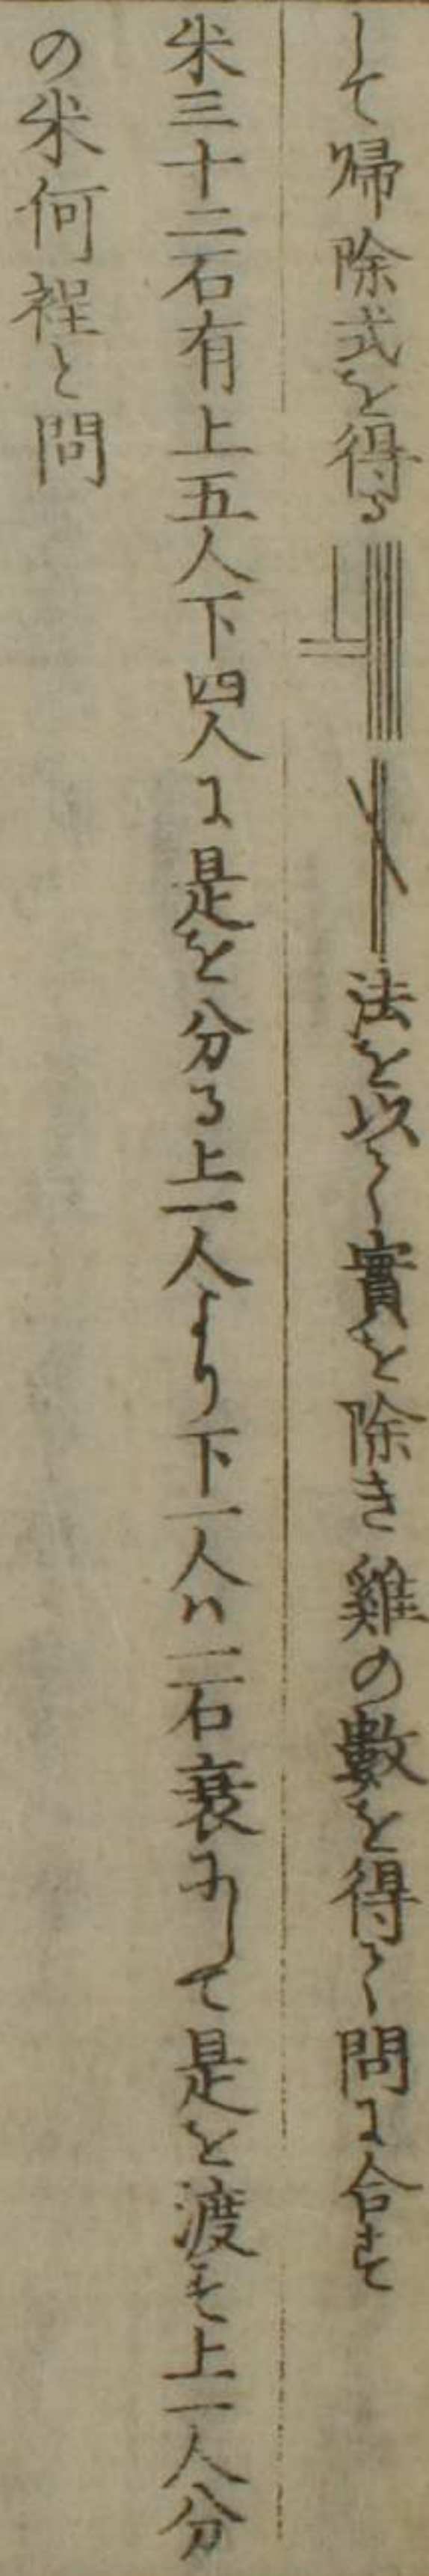 して帰除式を得る 法を以て實を除き雞の數を得て問に合す
米三十二石有上五人下四人に是を分る上一人より下一人ハ二石衰にして是を渡す上一人分
の米何程と問